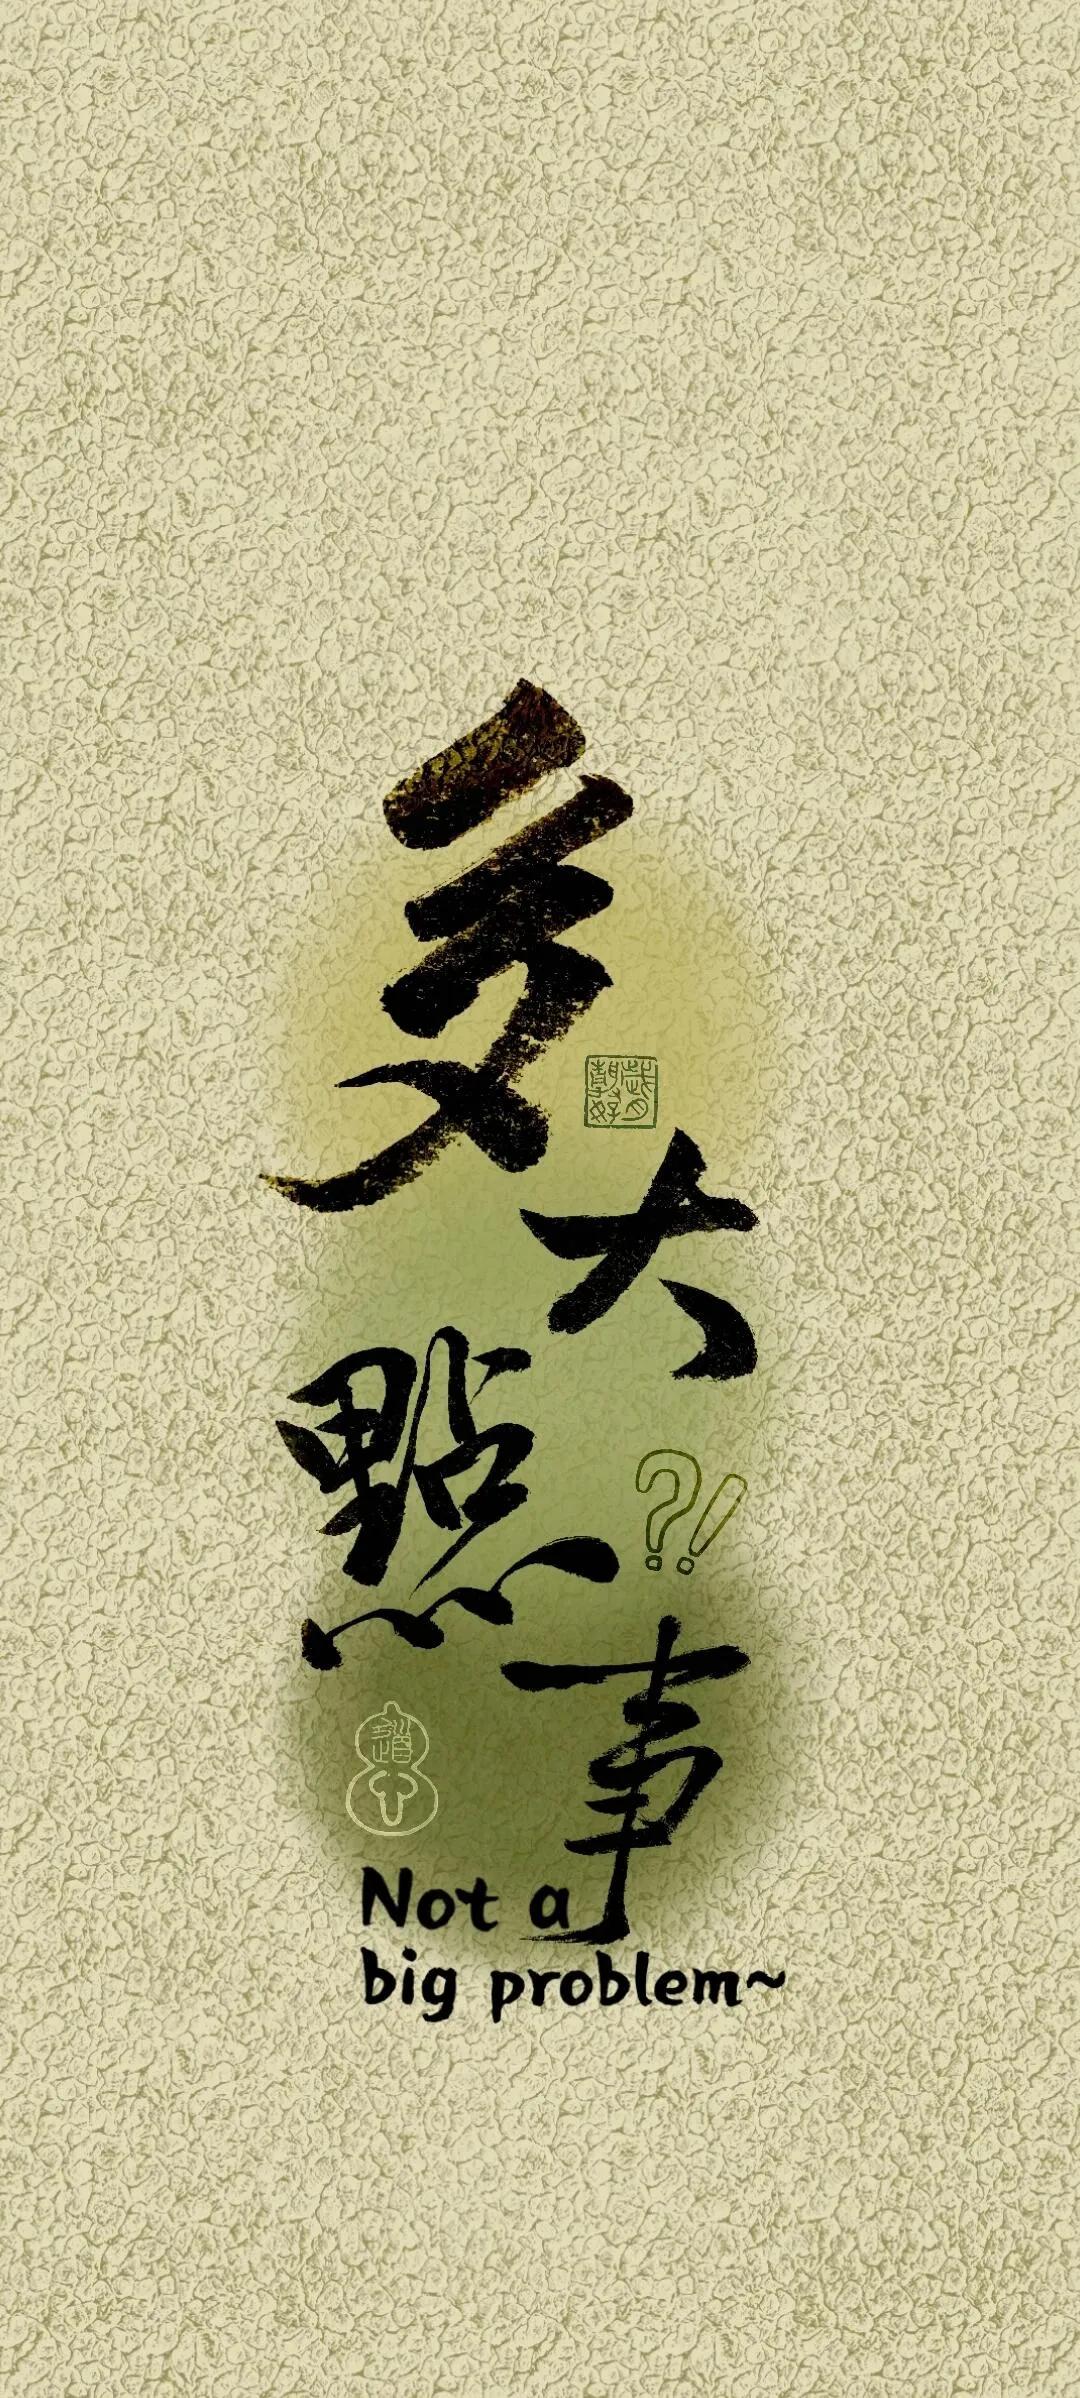 多
大
點
?!
事
Not a
big problem~